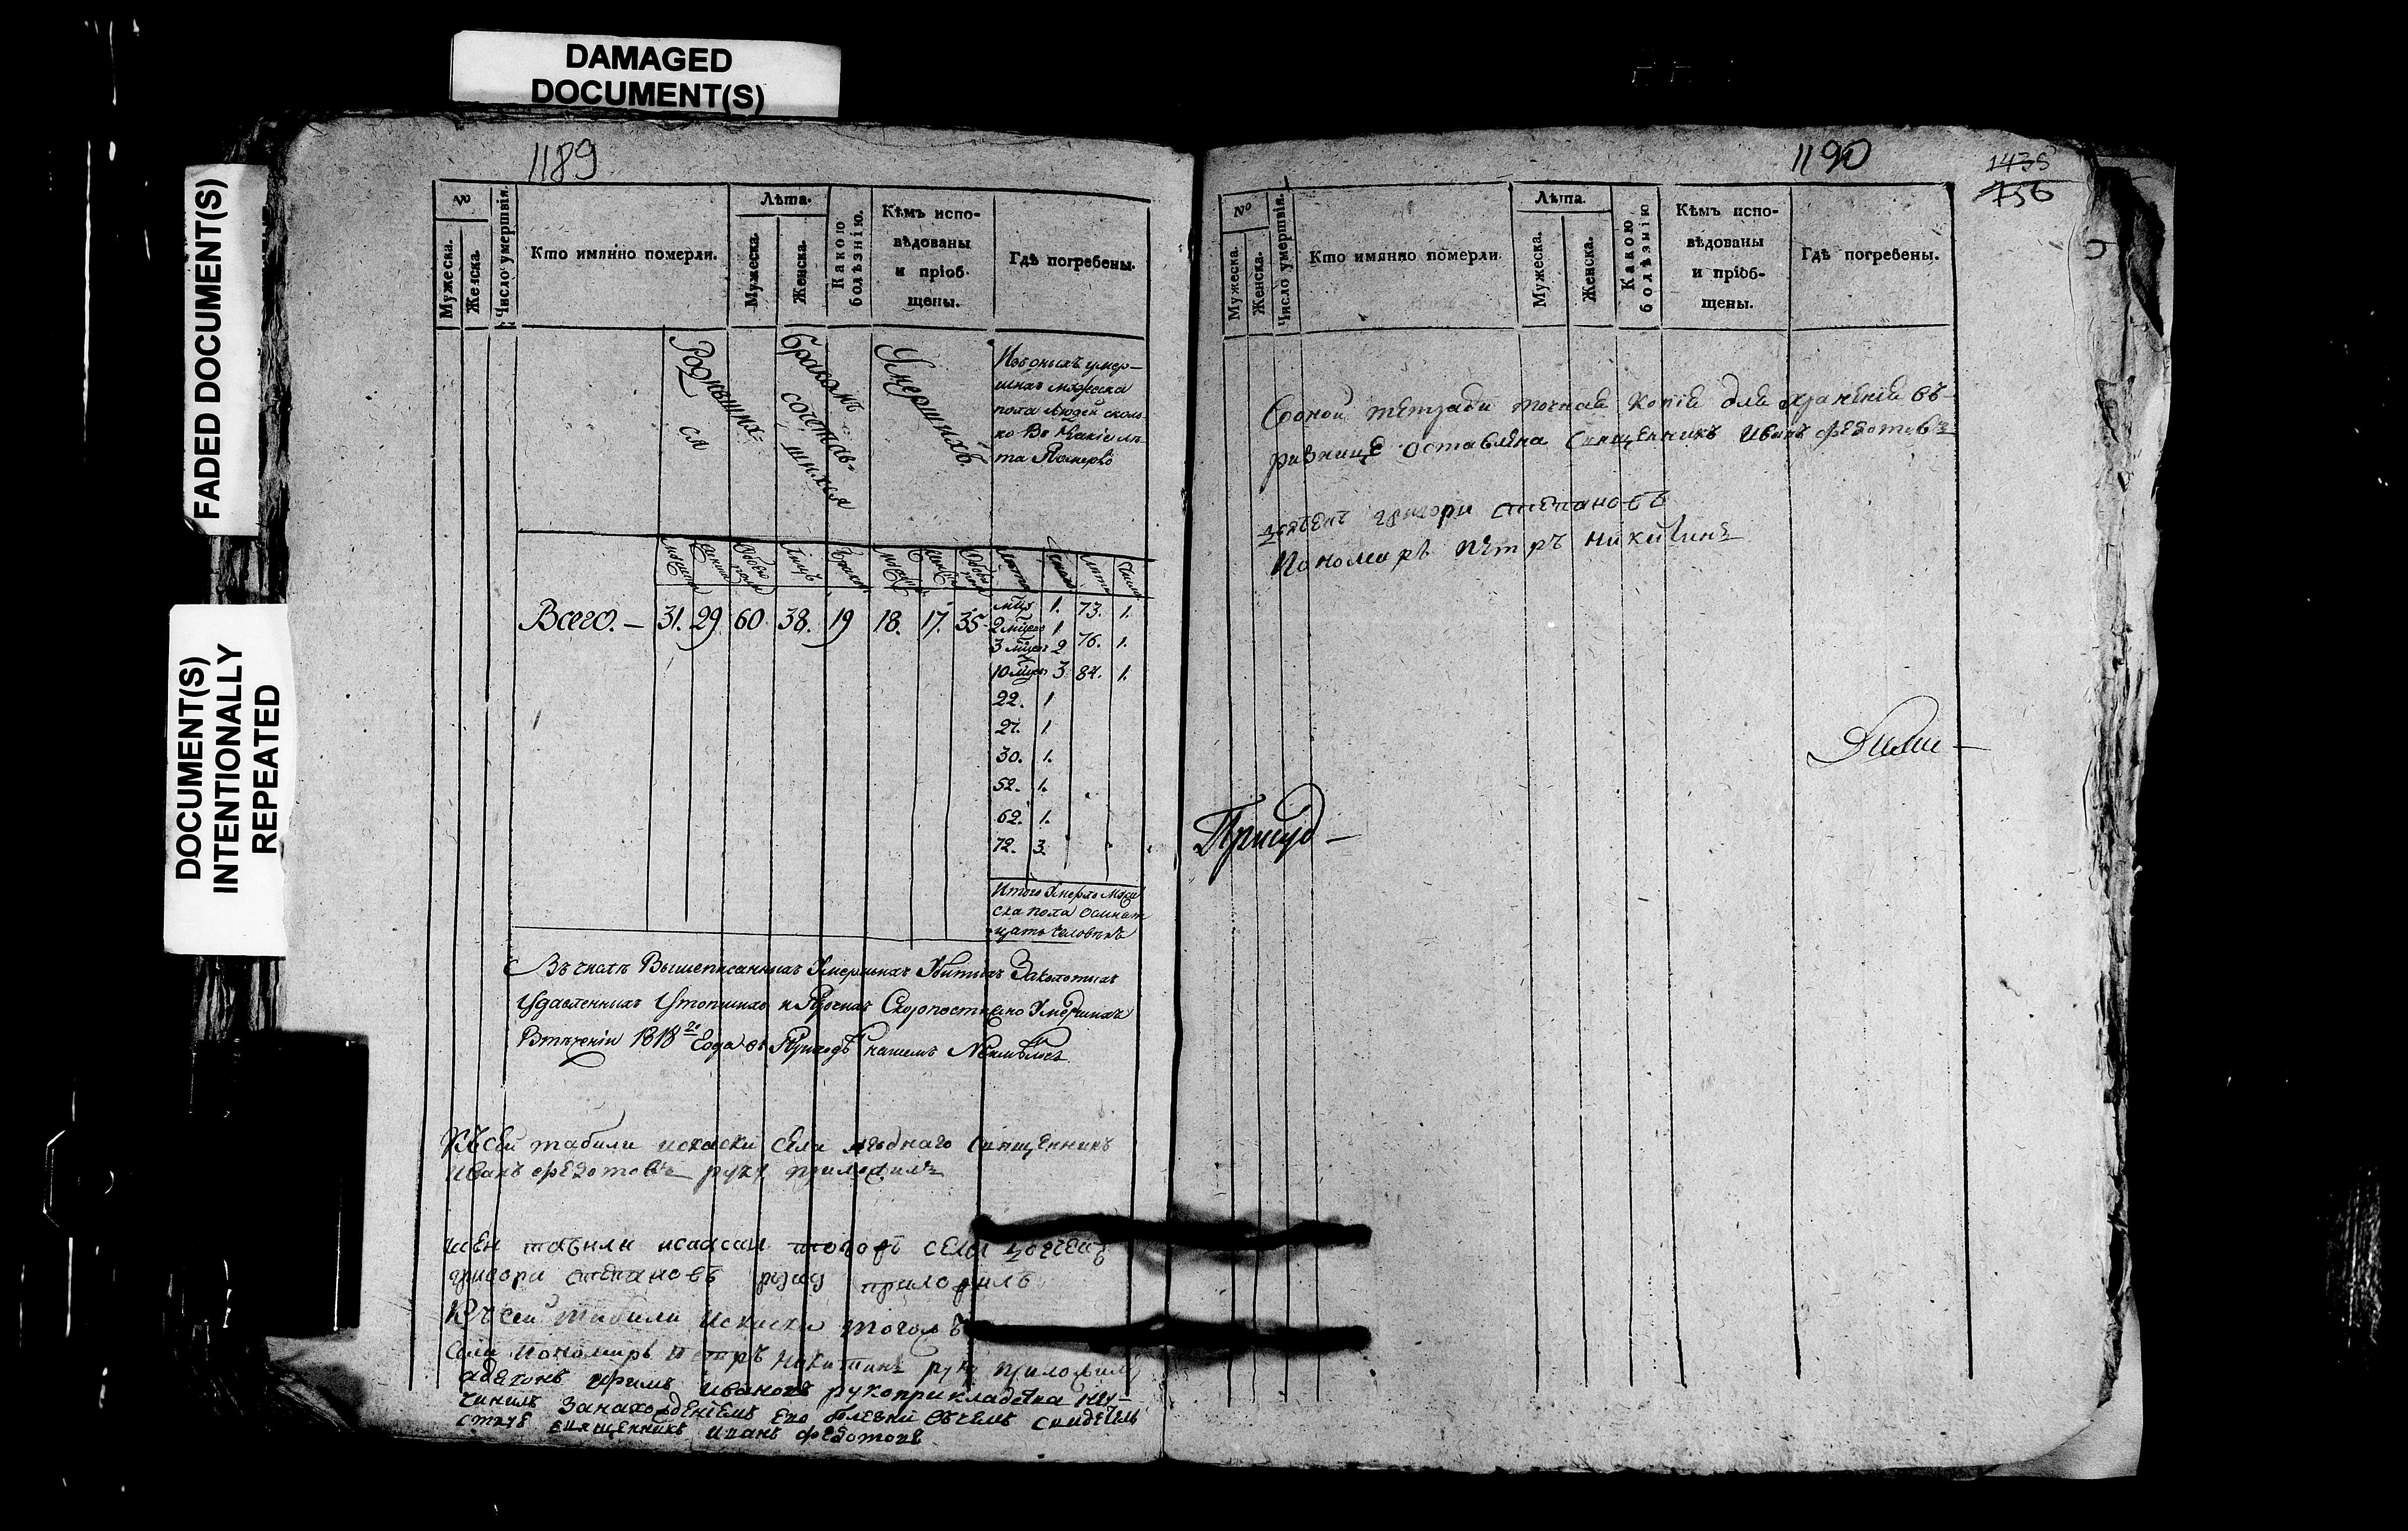 DAMAGED
DOCUMENT(S)
FADED DOCUMENT(S)
DOCUMENT(S)
INTENTIONALLY
REPEATED
1189
№
Мужеска.
Женска.
Число умертвія.
Кто имянно померли.
Лѣта.
Мужеска.
Женска.
Какою
болѣзнію.
Кѣмъ испо-
вѣдованы
и пріоб-
щены.
Гдѣ погребены.
Родивших-
ся
Бракомъ
сочетав-
шихся
Умершихъ.
Изъ оныхъ умер-
шихъ мужеска
пола людей сколь-
ко во какіе лѣ-
та померло
Всего. — 31. 29 60 38. 19 18. 17. 35
1. 73. 1.
2 1
76. 1.
3 2
10 3. 84. 1.
22. 1
27. 1.
30. 1.
52. 1.
62. 1.
72. 3.
Итого умерло муже
ска пола осмнат
цать человѣкъ
Въ числѣ вышеписанныхъ умершихъ убитыхъ заколотыхъ
удавленныхъ утопшихъ и прочихъ скоропостижно умершихъ
Втеченіи 1818го года въ приходѣ нашемъ
Къ сей табили села священникъ
Иванъ Федотовъ руку приложилъ
села
григори степановъ руку приложилъ
Къ сей табили тогожъ
села пономарь Петръ Никитинъ руку приложилъ
Ивановъ рукоприкладства не у-
чинилъ занахожденіемъ его въ чемъ свидетель
ствуе священникъ Иванъ Федотовъ
1190
1435
756
№
Мужеска.
Женска.
Число умертвія.
Кто имянно померли.
Лѣта.
Мужеска.
Женска.
Какою
болѣзнію
Кѣмъ испо-
вѣдованы
и пріоб-
щены.
Гдѣ погребены.
Соной тетради точная копія для храненія въ
ризнице оставлена Священникъ Иванъ Федотовъ
григори степановъ
Пономарь Петръ Никитинъ